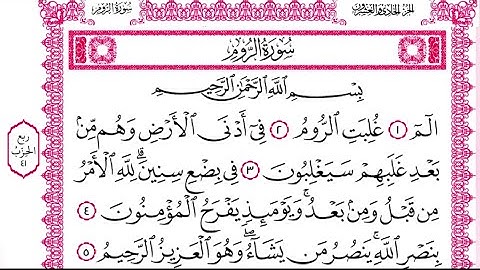 سُورَةُ الرُّومِ الجزء الحادي والعشرون
سُورَةُ الرُّومِ
بِسْمِ اللَّهِ الرَّحْمَٰنِ الرَّحِيمِ
الٓمٓ ١ غُلِبَتِ الرُّومُ ٢ فِىٓ أَدْنَى الْأَرْضِ وَهُم مِّنۢ
بَعْدِ غَلَبِهِمْ سَيَغْلِبُونَ ٣ فِى بِضْعِ سِنِينَ ۗ لِلَّهِ الْأَمْرُ
مِن قَبْلُ وَمِنۢ بَعْدُ ۚ وَيَوْمَئِذٍ يَفْرَحُ الْمُؤْمِنُونَ ٤
بِنَصْرِ اللَّهِ ۚ يَنصُرُ مَن يَشَآءُ ۖ وَهُوَ الْعَزِيزُ الرَّحِيمُ ٥
ربع
الحزب
٤١